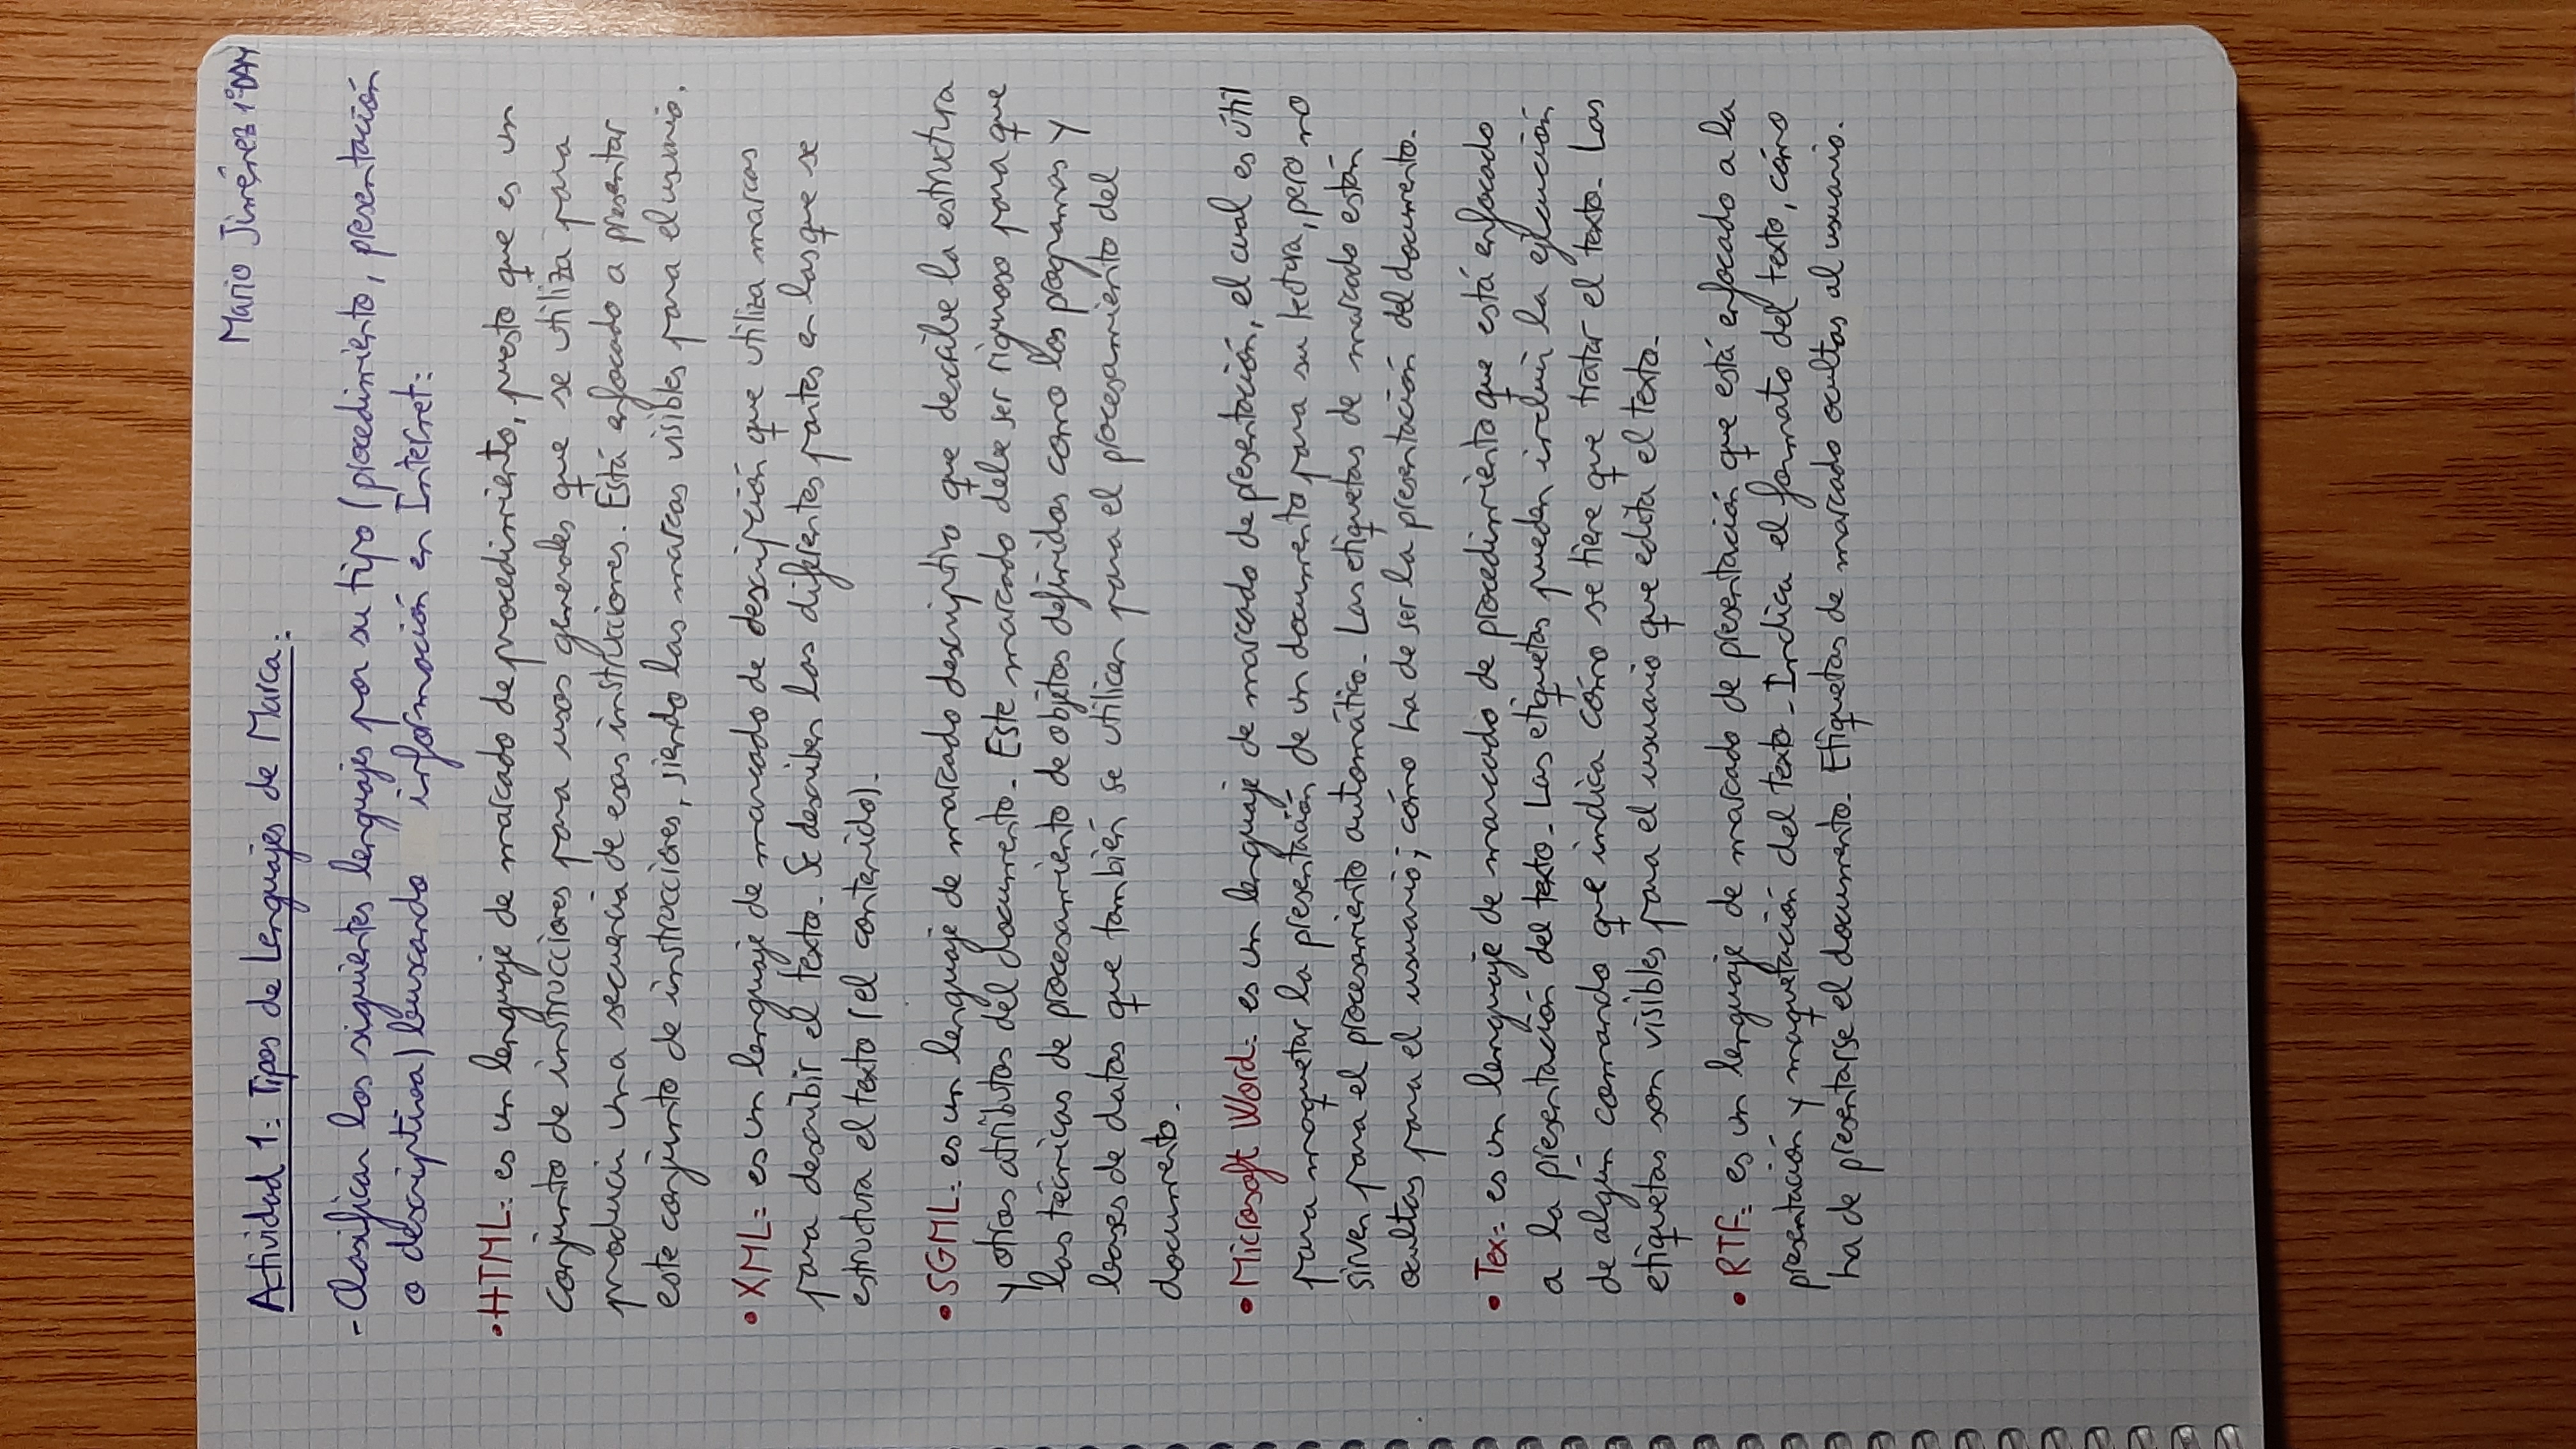 Mario Jiménez 1ºDAM
Actividad 1: Tipos de Lenguajes de Marca:
- Clasificar los siguientes lenguajes por su tipo (procedimiento, presentación
o descriptiva) buscando información en Internet:
• HTML: es un lenguaje de marcado de procedimiento, puesto que es un
conjunto de instrucciones para usos generales que se utiliza para
producir una secuencia de esas instrucciones. Está enfocado a presentar
este conjunto de instrucciones, siendo las marcas visibles para el usuario.
• XML: es un lenguaje de marcado de descripción que utiliza marcas
para describir el texto. Se describen las diferentes partes en las que se
estructura el texto (el contenido).
• SGML: es un lenguaje de marcado descriptivo que describe la estructura
y otros atributos del documento. Este marcado debe ser riguroso para que
las técnicas de procesamiento de objetos definidos como los programas y
bases de datos que también se utilicen para el procesamiento del
documento.
• Microsoft Word: es un lenguaje de marcado de presentación, el cual es útil
para maquetar la presentación de un documento para su lectura, pero no
sirven para el procesamiento automático. Las etiquetas de marcado están
ocultas para el usuario; cómo ha de ser la presentación del documento.
• Tex: es un lenguaje de marcado de procedimiento que está enfocado
a la presentación del texto. Las etiquetas pueden incluir la ejecución
de algún comando que indica cómo se tiene que tratar el texto. Las
etiquetas son visibles para el usuario que edita el texto.
• RTF: es un lenguaje de marcado de presentación que está enfocado a la
presentación y maquetación del texto. Indica el formato del texto, cómo
ha de presentarse el documento. Etiquetas de marcado ocultas al usuario.